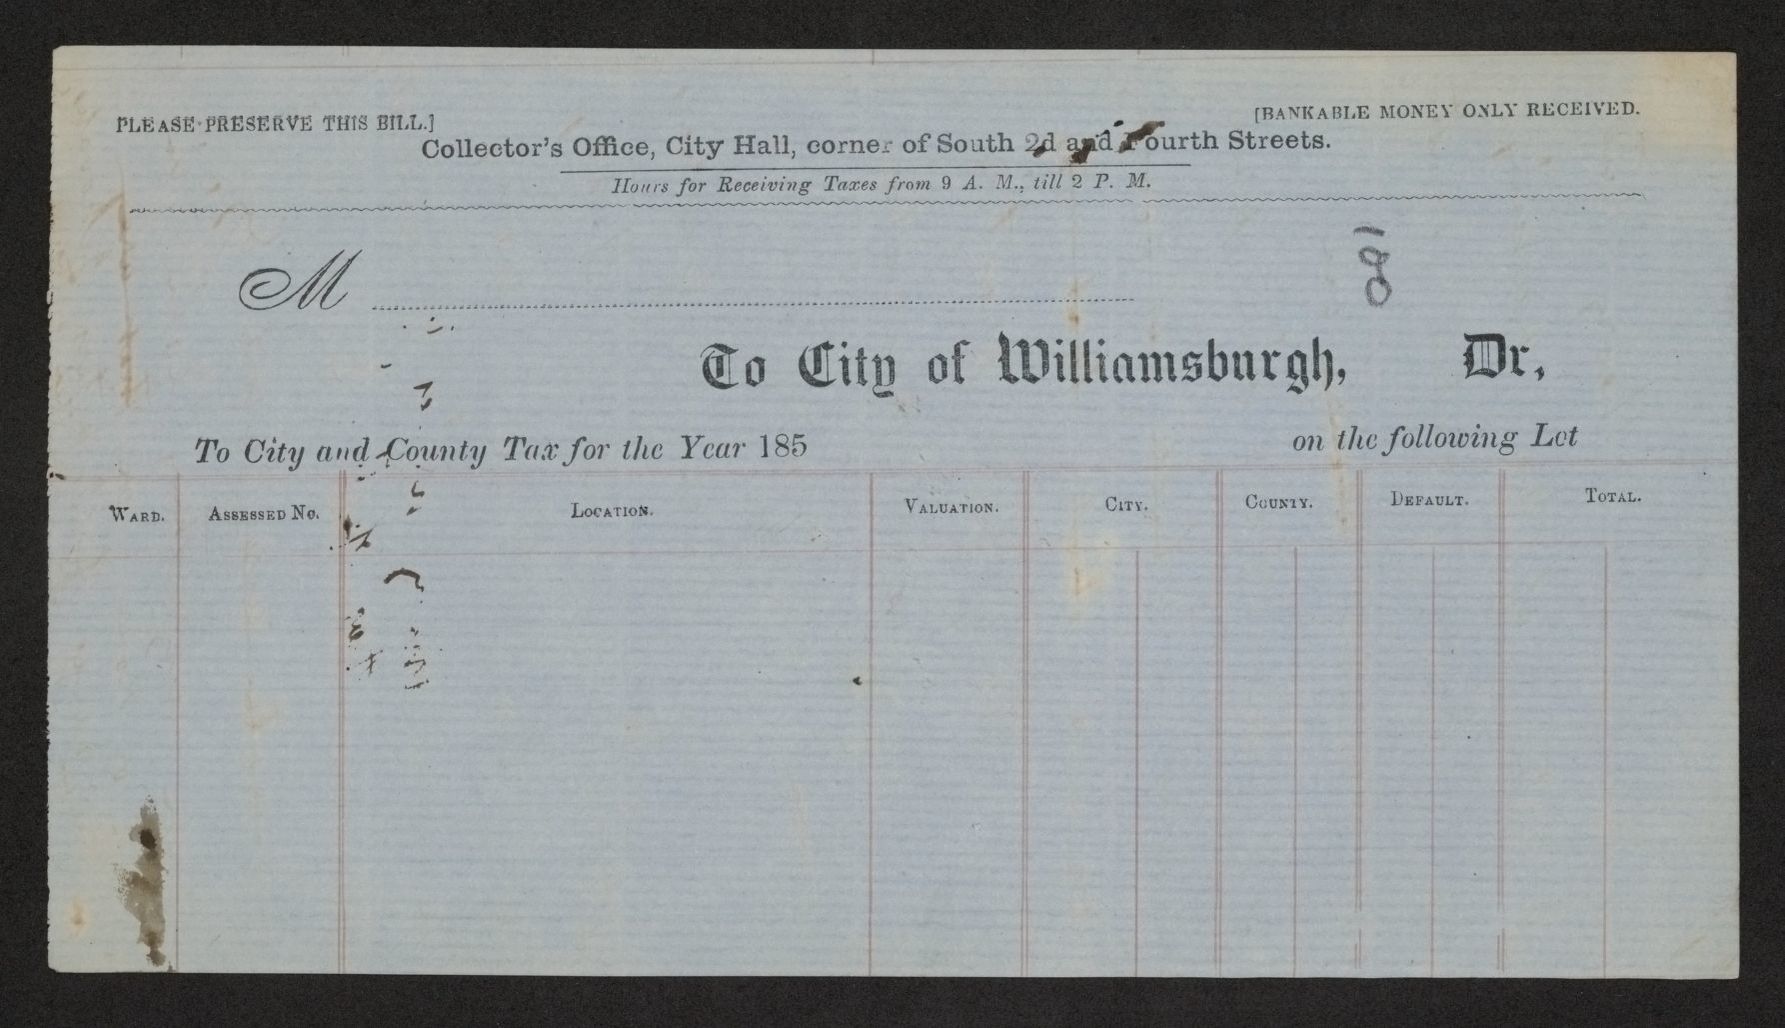 PLEASE PRESERVE THIS BILL.]
[BANKABLE MONEY ONLY RECEIVED.
Collector's Office, City Hall, corner of South 2d and Fourth Streets.
Hours for Receiving Taxes from 9 A. M., till 2 P. M.
M
To City of Williamsburgh, Dr,
To City and County Tax for the Year 185 on the following Lot
WARD. ASSESSED No. LOCATION. VALUATION. CITY. COUNTY. DEFAULT. TOTAL.